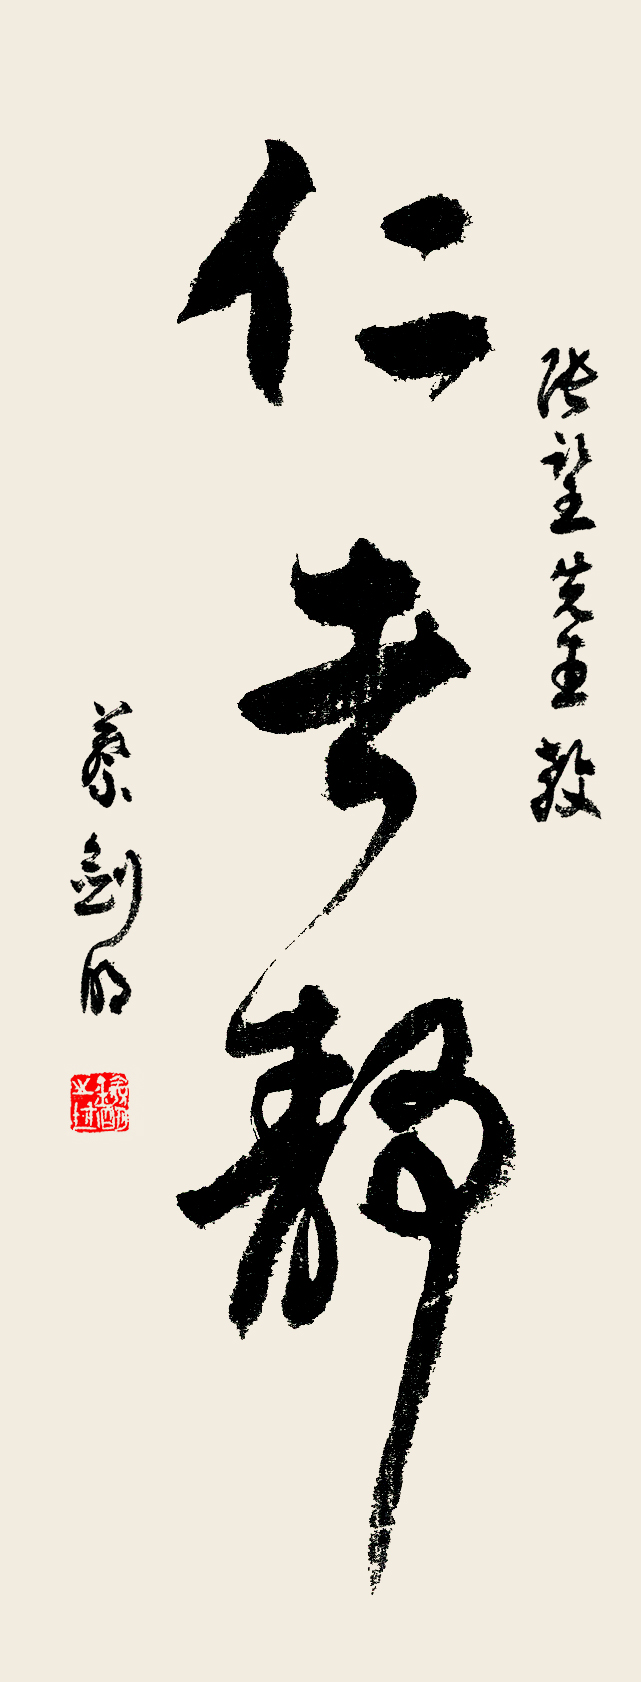 張望先生教
仁者靜
蔡劍明